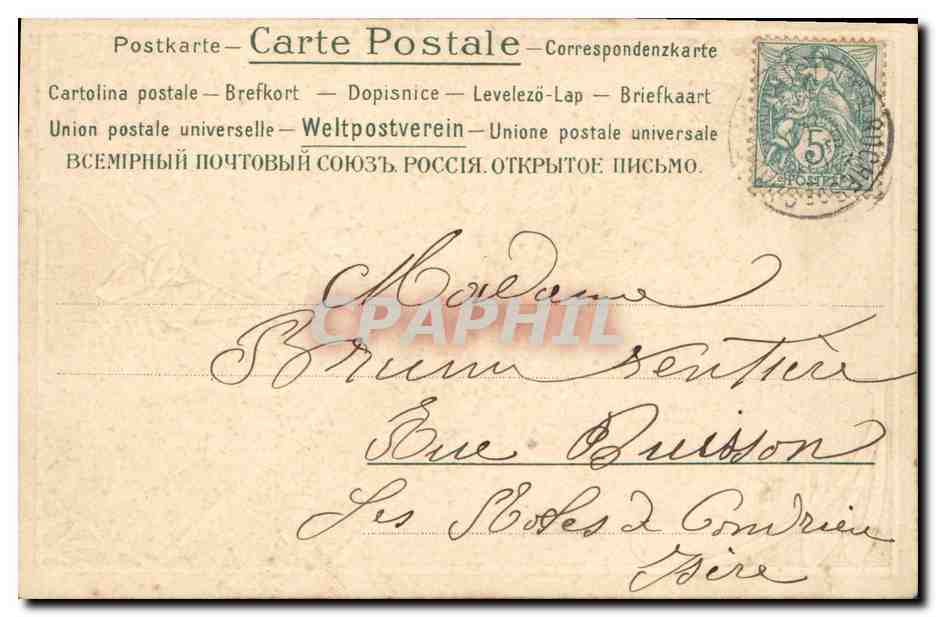 Postkarte — Carte Postale — Correspondenzkarte
Cartolina postale — Brefkort — Dopisnice — Levelező-Lap — Briefkaart
Union postale universelle — Weltpostverein — Unione postale universale
ВСЕМІРНЫЙ ПОЧТОВЫЙ СОЮЗЪ. РОССІЯ. ОТКРЫТОЕ ПИСЬМО.
5
POSTES
Madame
CPAPHIL
Brunu rentière
Rue Buisson
Les Roches de Condrieu
Isère